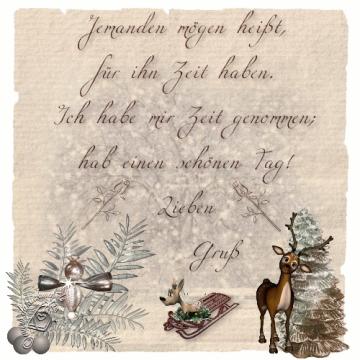 Jemanden mögen heißt,
für ihn Zeit haben.
Ich habe mir Zeit genommen;
hab einen schönen Tag!
Lieben
Gruß